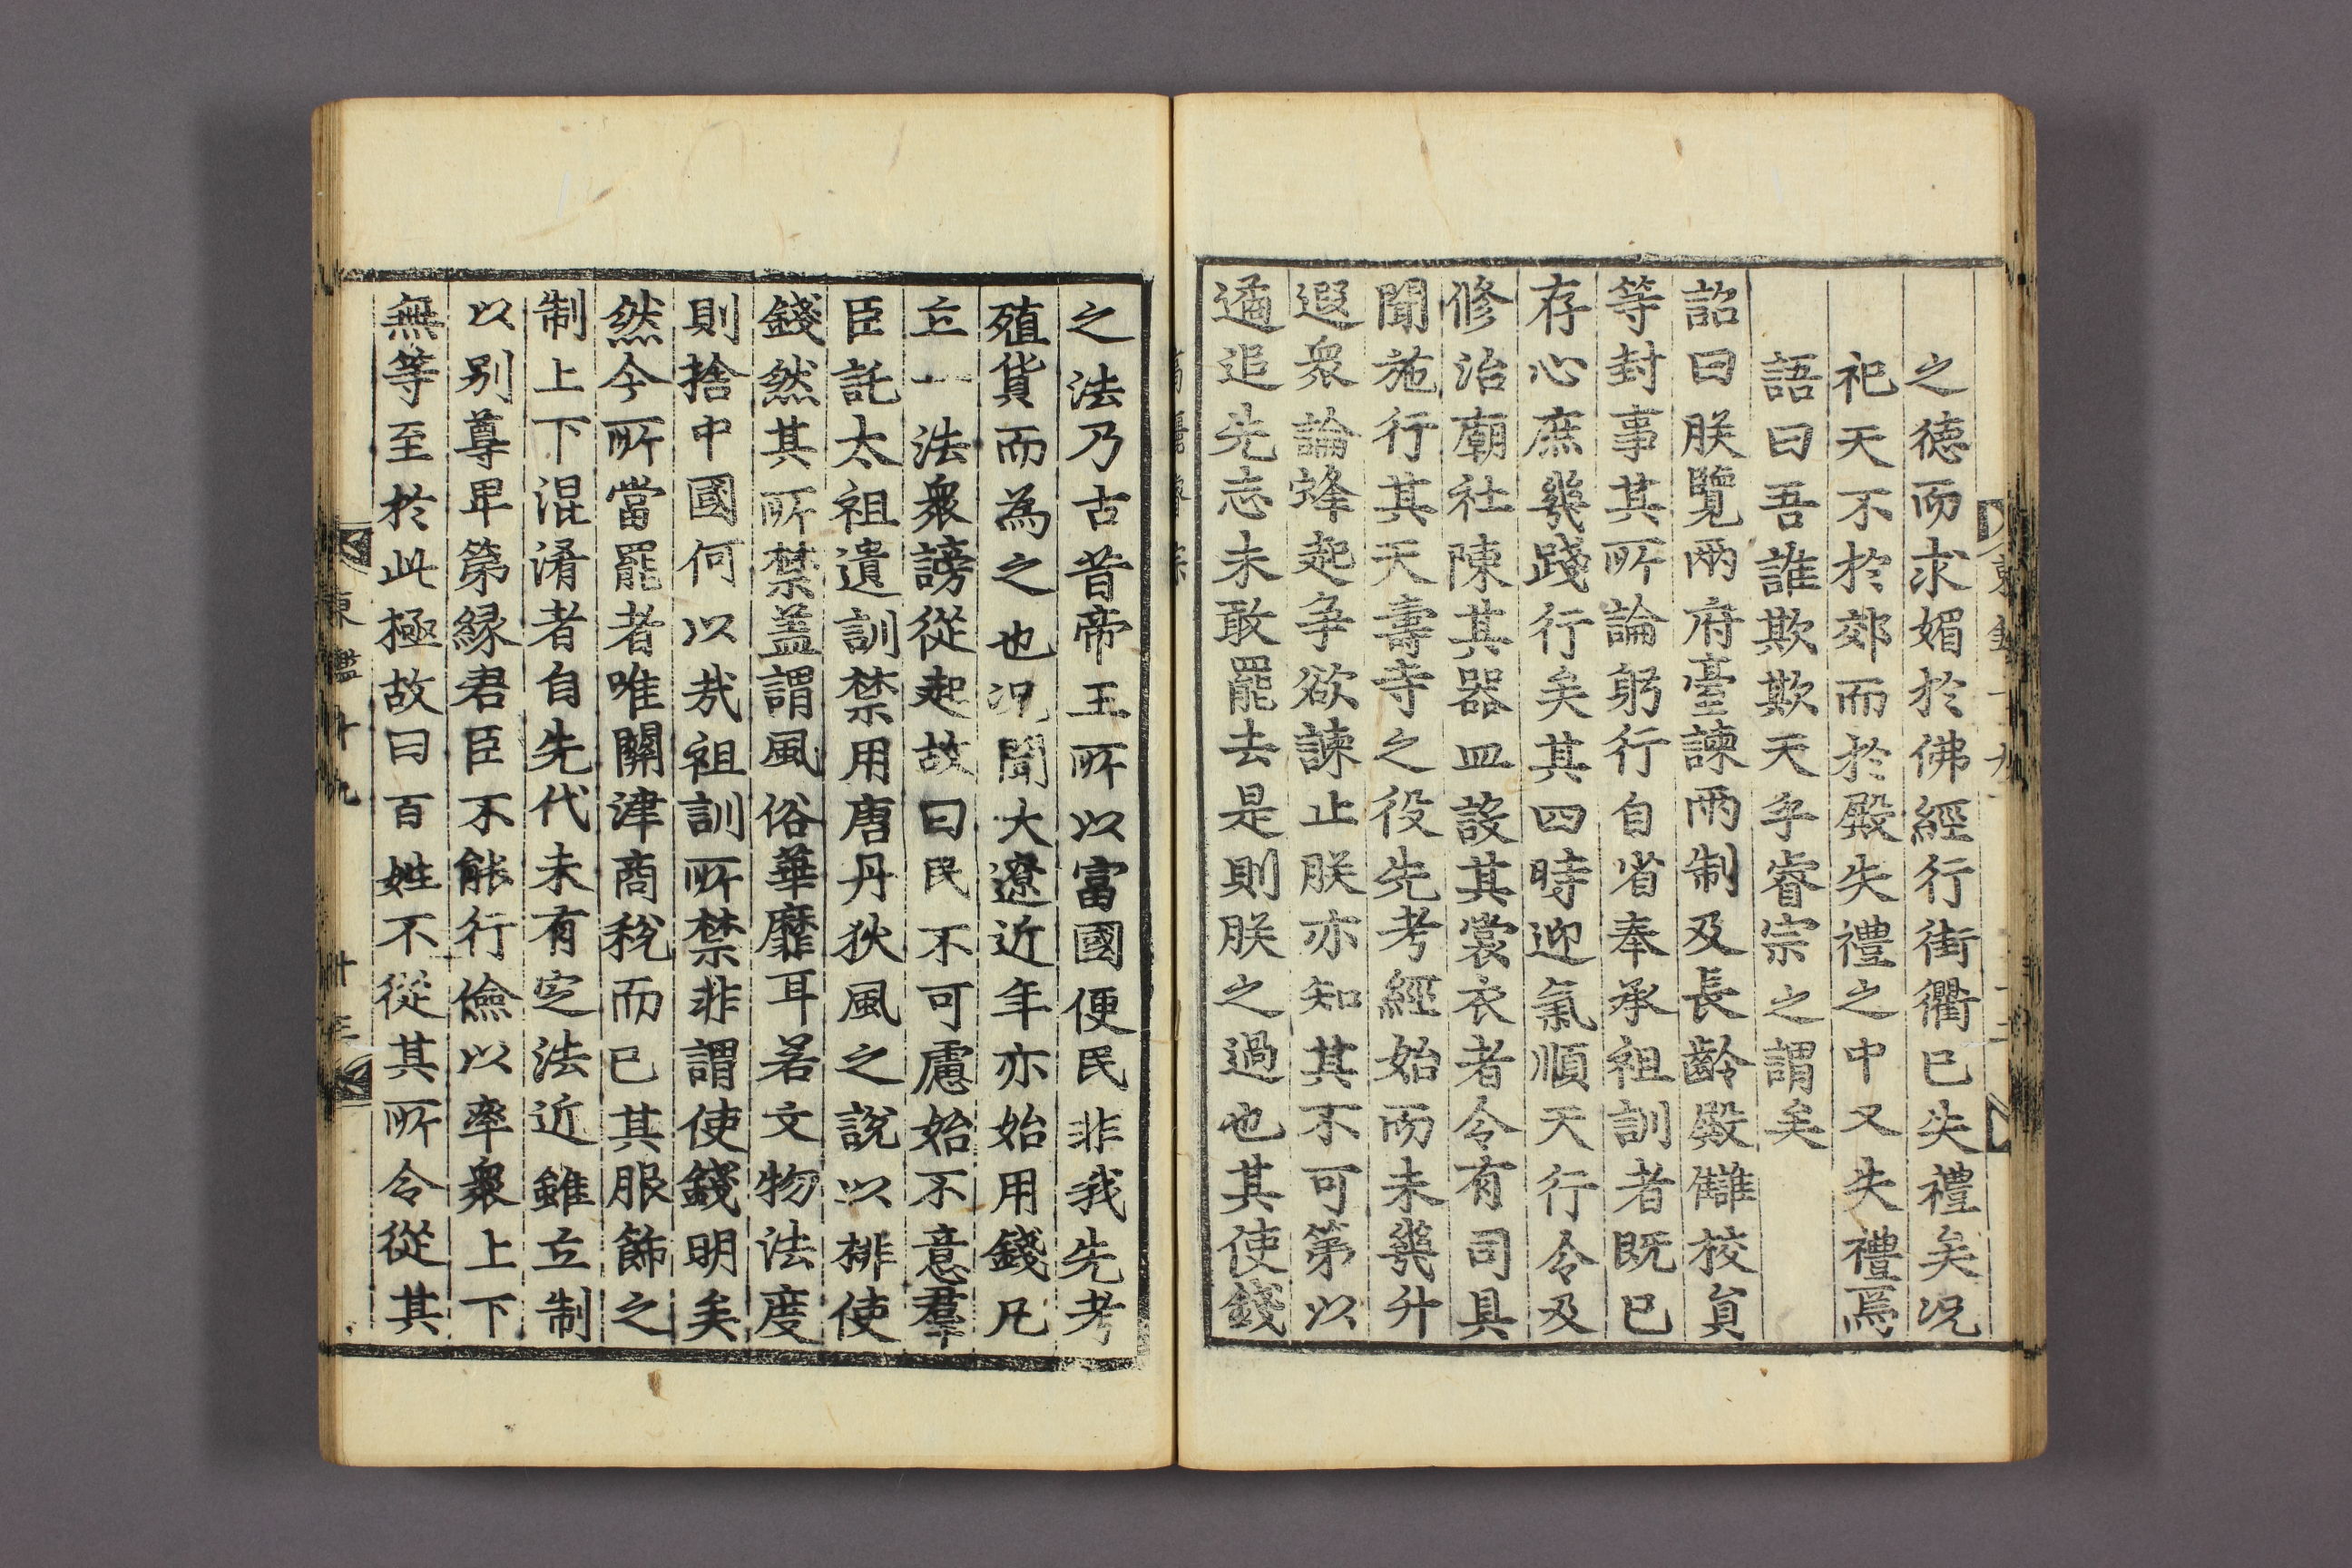 之德而求媚於佛經行街衢已失禮矣况
祀天不於郊而於殿失禮之中又失禮焉
語曰吾誰欺欺天乎睿宗之謂矣
詔曰朕覽兩府臺諫兩制及長齡殿讎校貟
等封事其所論躬行自省奉承祖訓者既已
存心庶幾踐行矣其四時迎氣順天行令及
修治廟社陳其器皿設其裳衣者令有司具
聞施行其天壽寺之役先考經始而未幾升
遐衆論蜂起爭欲諫止朕亦知其不可第以
遹追先志未敢罷去是則朕之過也其使錢
之法乃古昔帝王所以富國便民非我先考
殖貨而為之也况聞大遼近年亦始用錢凡
立一法衆謗從起故曰民不可慮始不意羣
臣託太祖遺訓禁用唐丹狄風之說以排使
錢然其所禁盖謂風俗華靡耳若文物法度
則捨中國何以哉祖訓所禁非謂使錢明矣
然今所當罷者唯關津商稅而已其服飾之
制上下混淆者自先代未有定法近雖立制
以别尊卑第緣君臣不能行儉以率衆上下
無等至於此極故曰百姓不從其所令從其
東鑑十九 十三